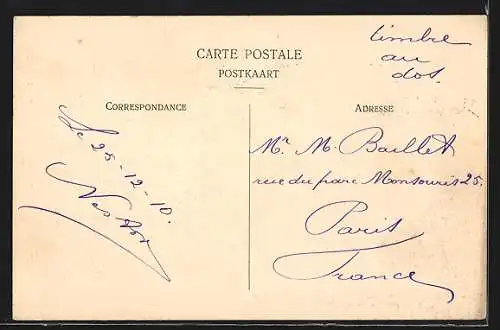 CARTE POSTALE
POSTKAART
timbre
au
dos.
CORRESPONDANCE
Le 25-12-10.
Nestor
ADRESSE
Mr. M. Baillet
rue du parc Monsouris 25.
Paris
France